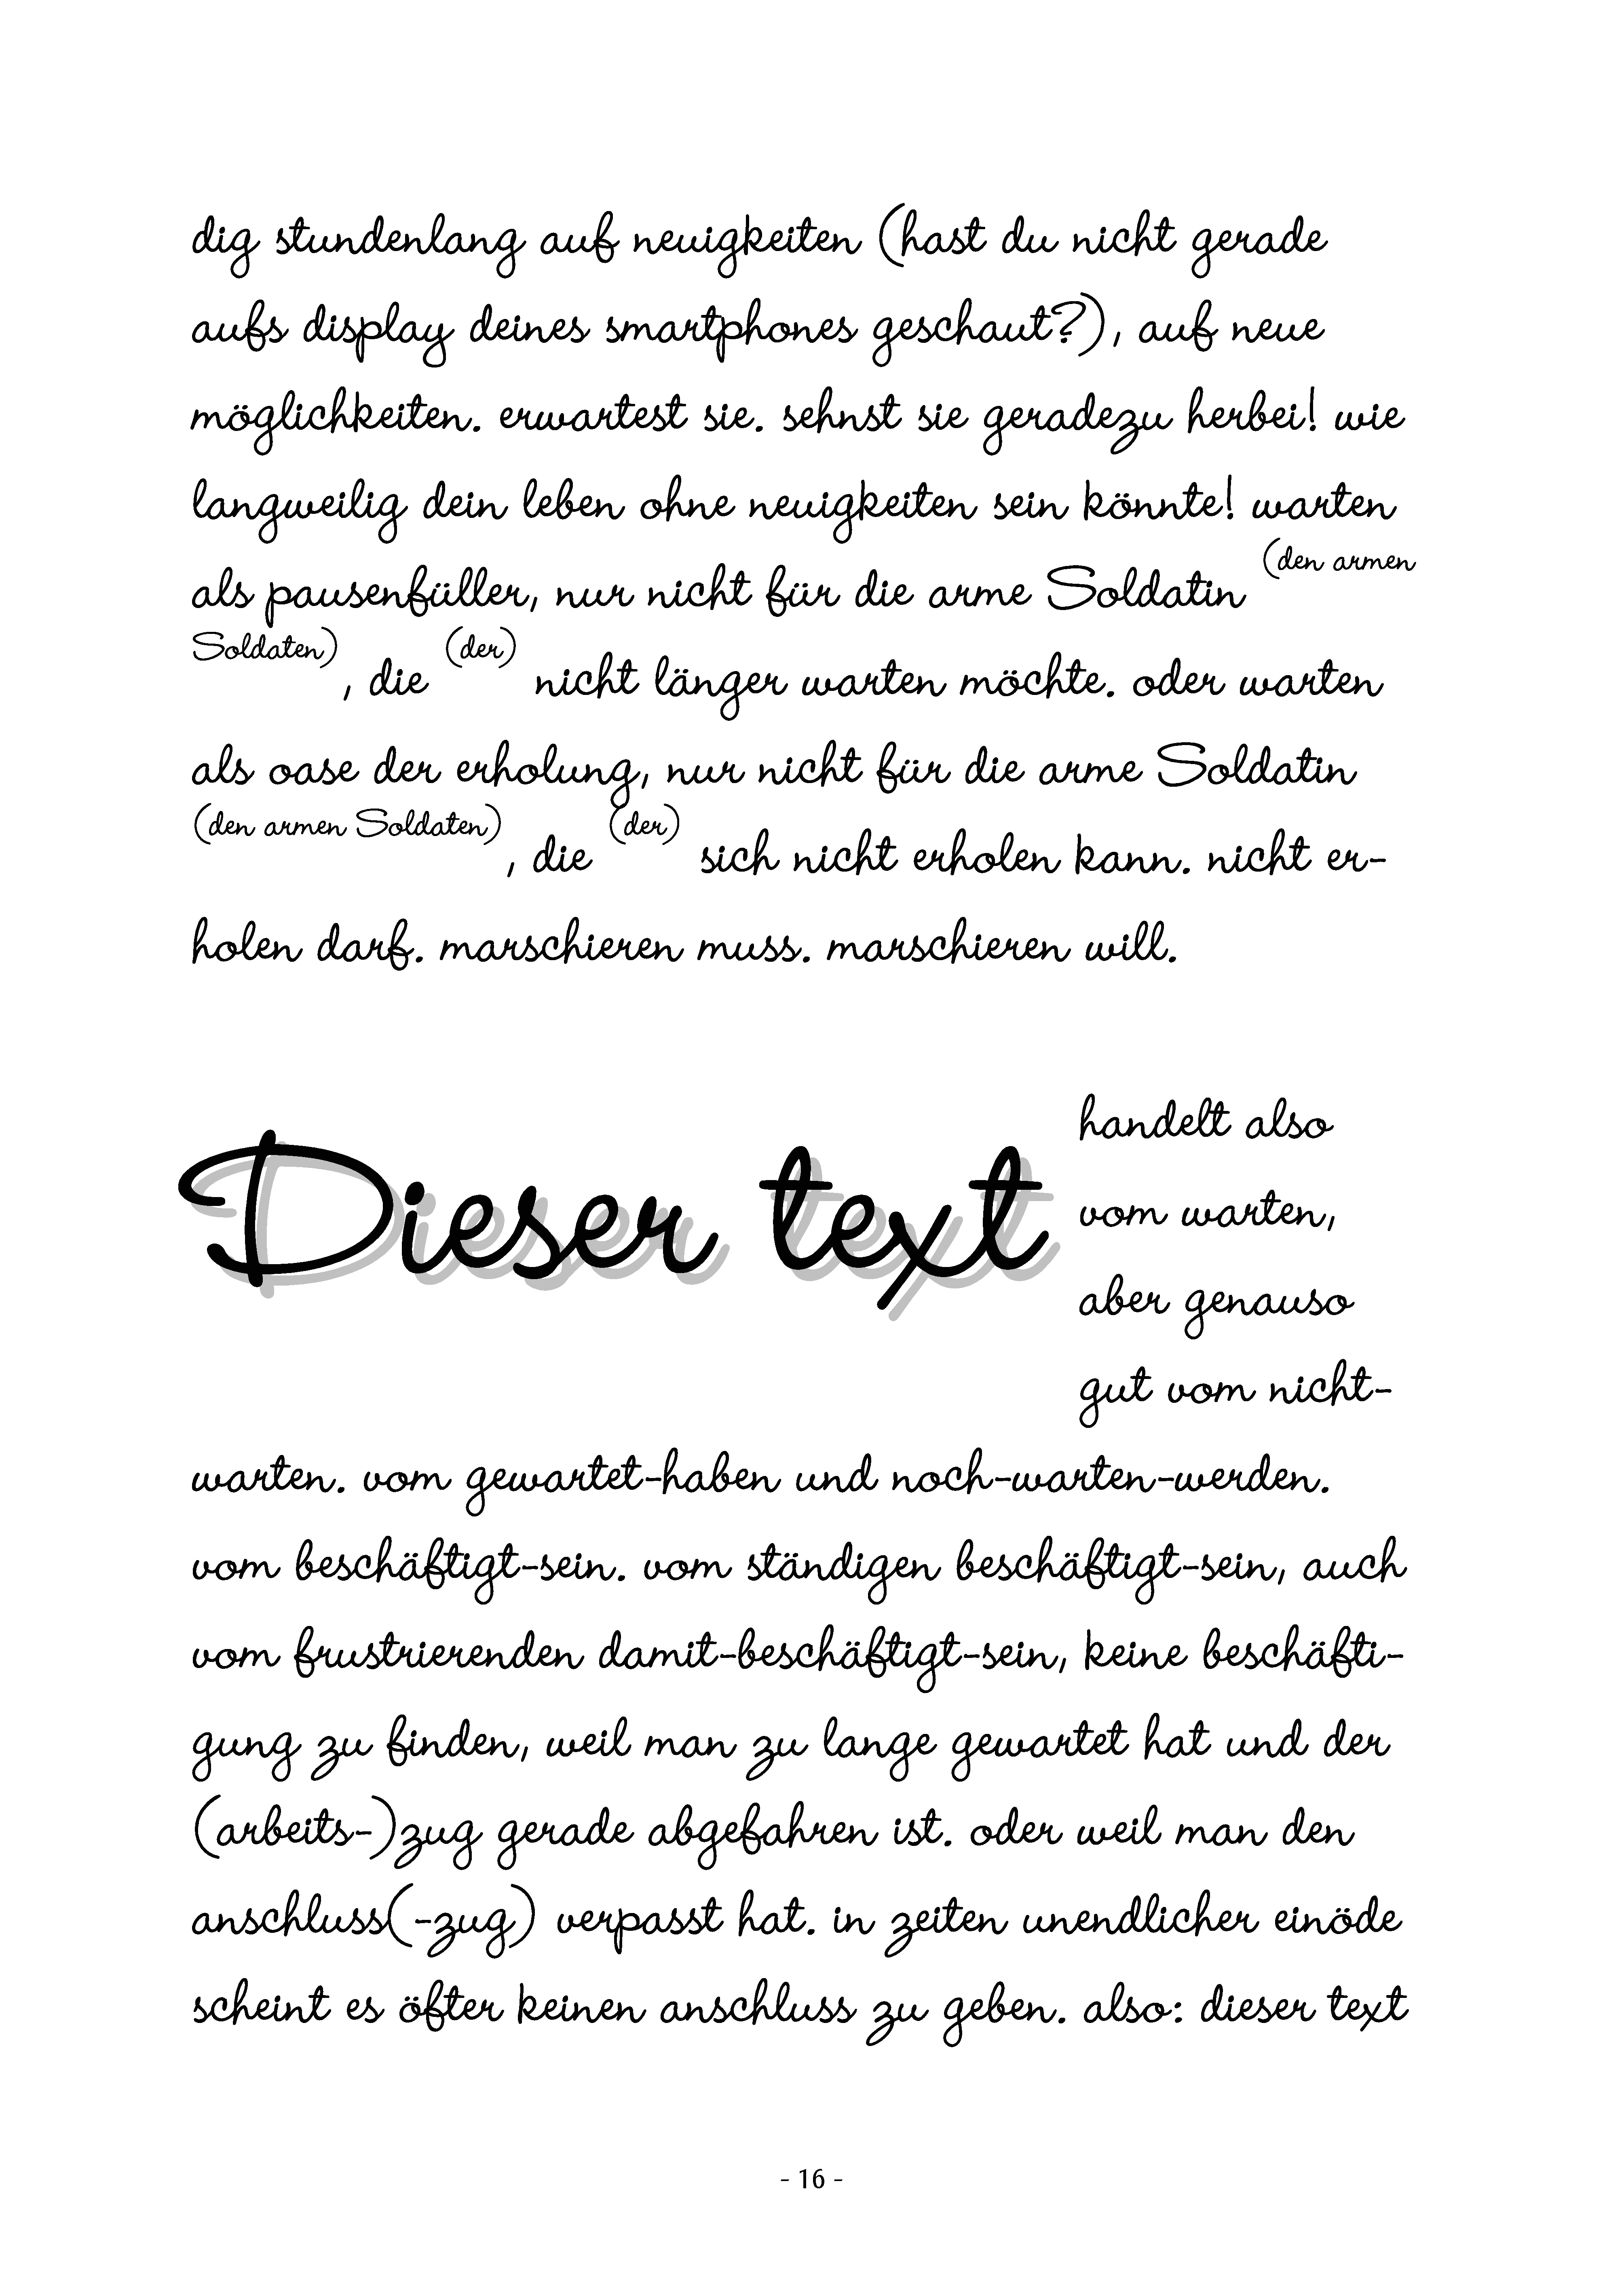 dig stundenlang auf neuigkeiten (hast du nicht gerade
aufs display deines smartphones geschaut?), auf neue
möglichkeiten. erwartest sie. sehnst sie geradezu herbei! wie
langweilig dein leben ohne neuigkeiten sein könnte! warten
als pausenfüller, nur nicht für die arme Soldatin (den armen
Soldaten), die (der) nicht länger warten möchte. oder warten
als oase der erholung, nur nicht für die arme Soldatin
(den armen Soldaten), die (der) sich nicht erholen kann. nicht er-
holen darf. marschieren muss. marschieren will.
Dieser text
handelt also
vom warten,
aber genauso
gut vom nicht-
warten. vom gewartet-haben und noch-warten-werden.
vom beschäftigt-sein. vom ständigen beschäftigt-sein, auch
vom frustrierenden damit-beschäftigt-sein, keine beschäfti-
gung zu finden, weil man zu lange gewartet hat und der
(arbeits-)zug gerade abgefahren ist. oder weil man den
anschluss(-zug) verpasst hat. in zeiten unendlicher einöde
scheint es öfter keinen anschluss zu geben. also: dieser text
- 16 -